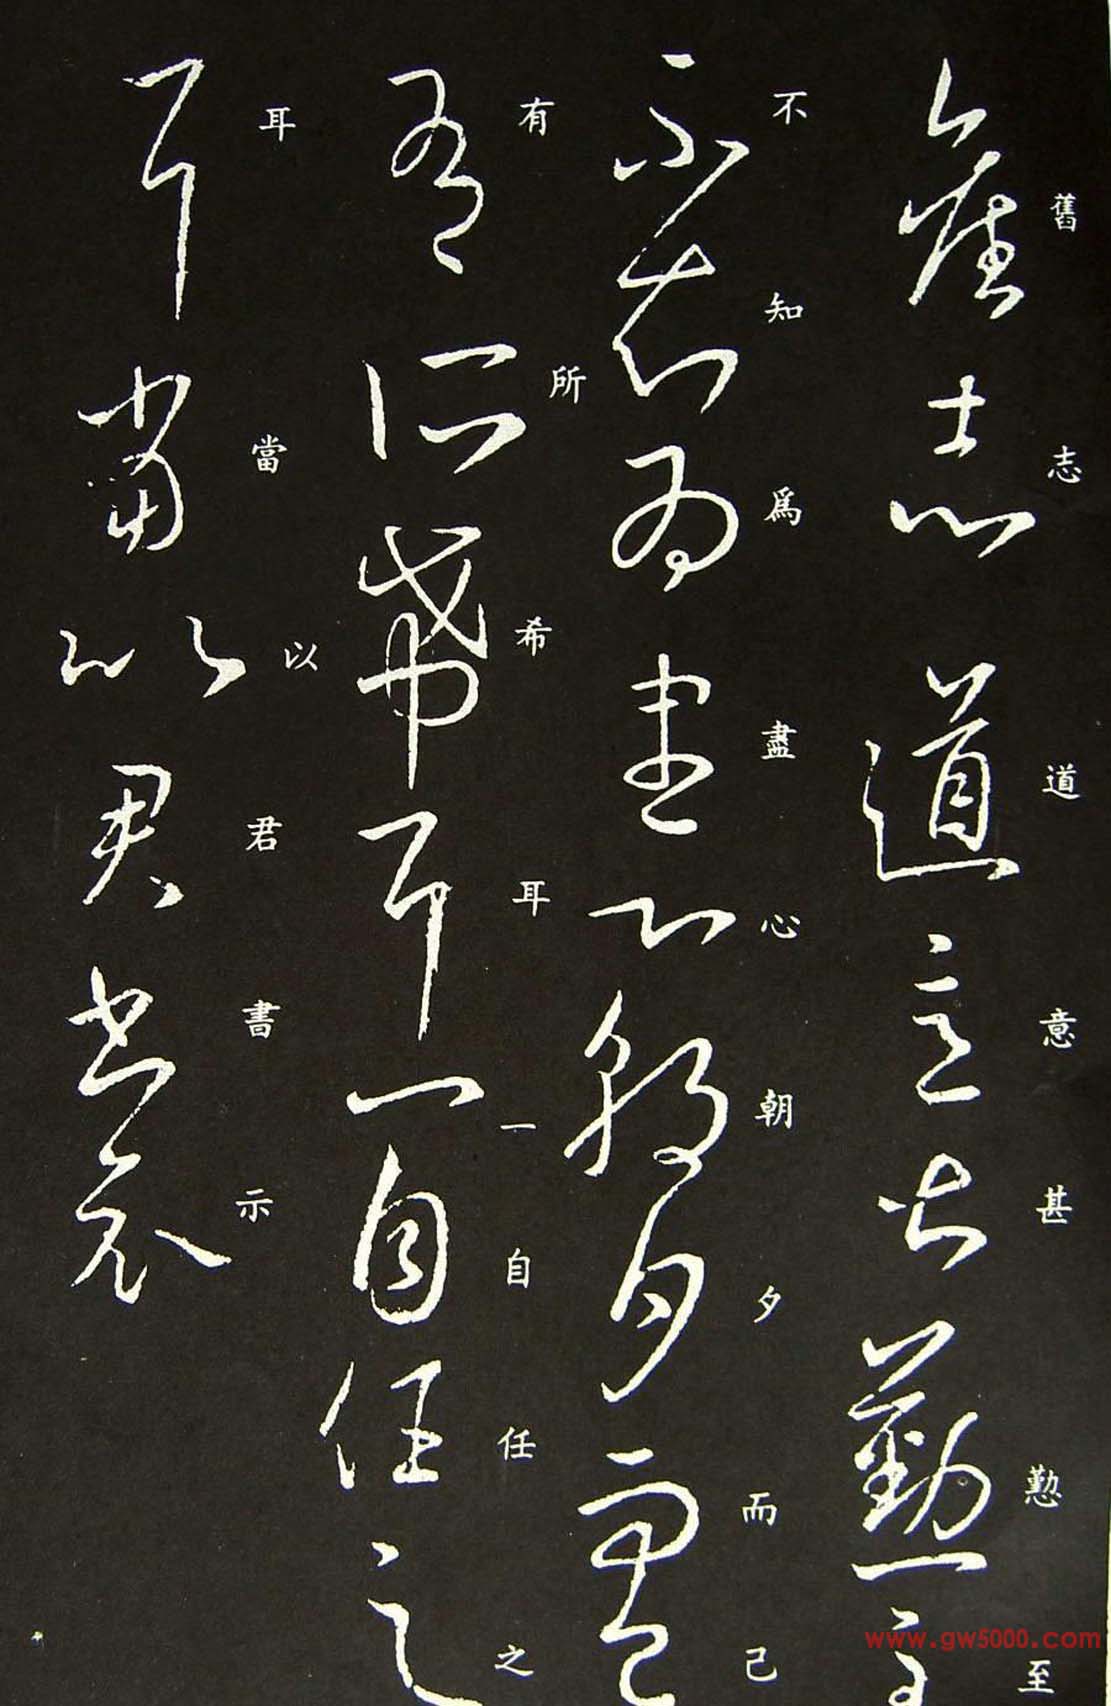 舊志道意甚懃至
不知爲盡心朝夕而已
有所希耳一自任之
耳當以君書示
www.gw5000.com